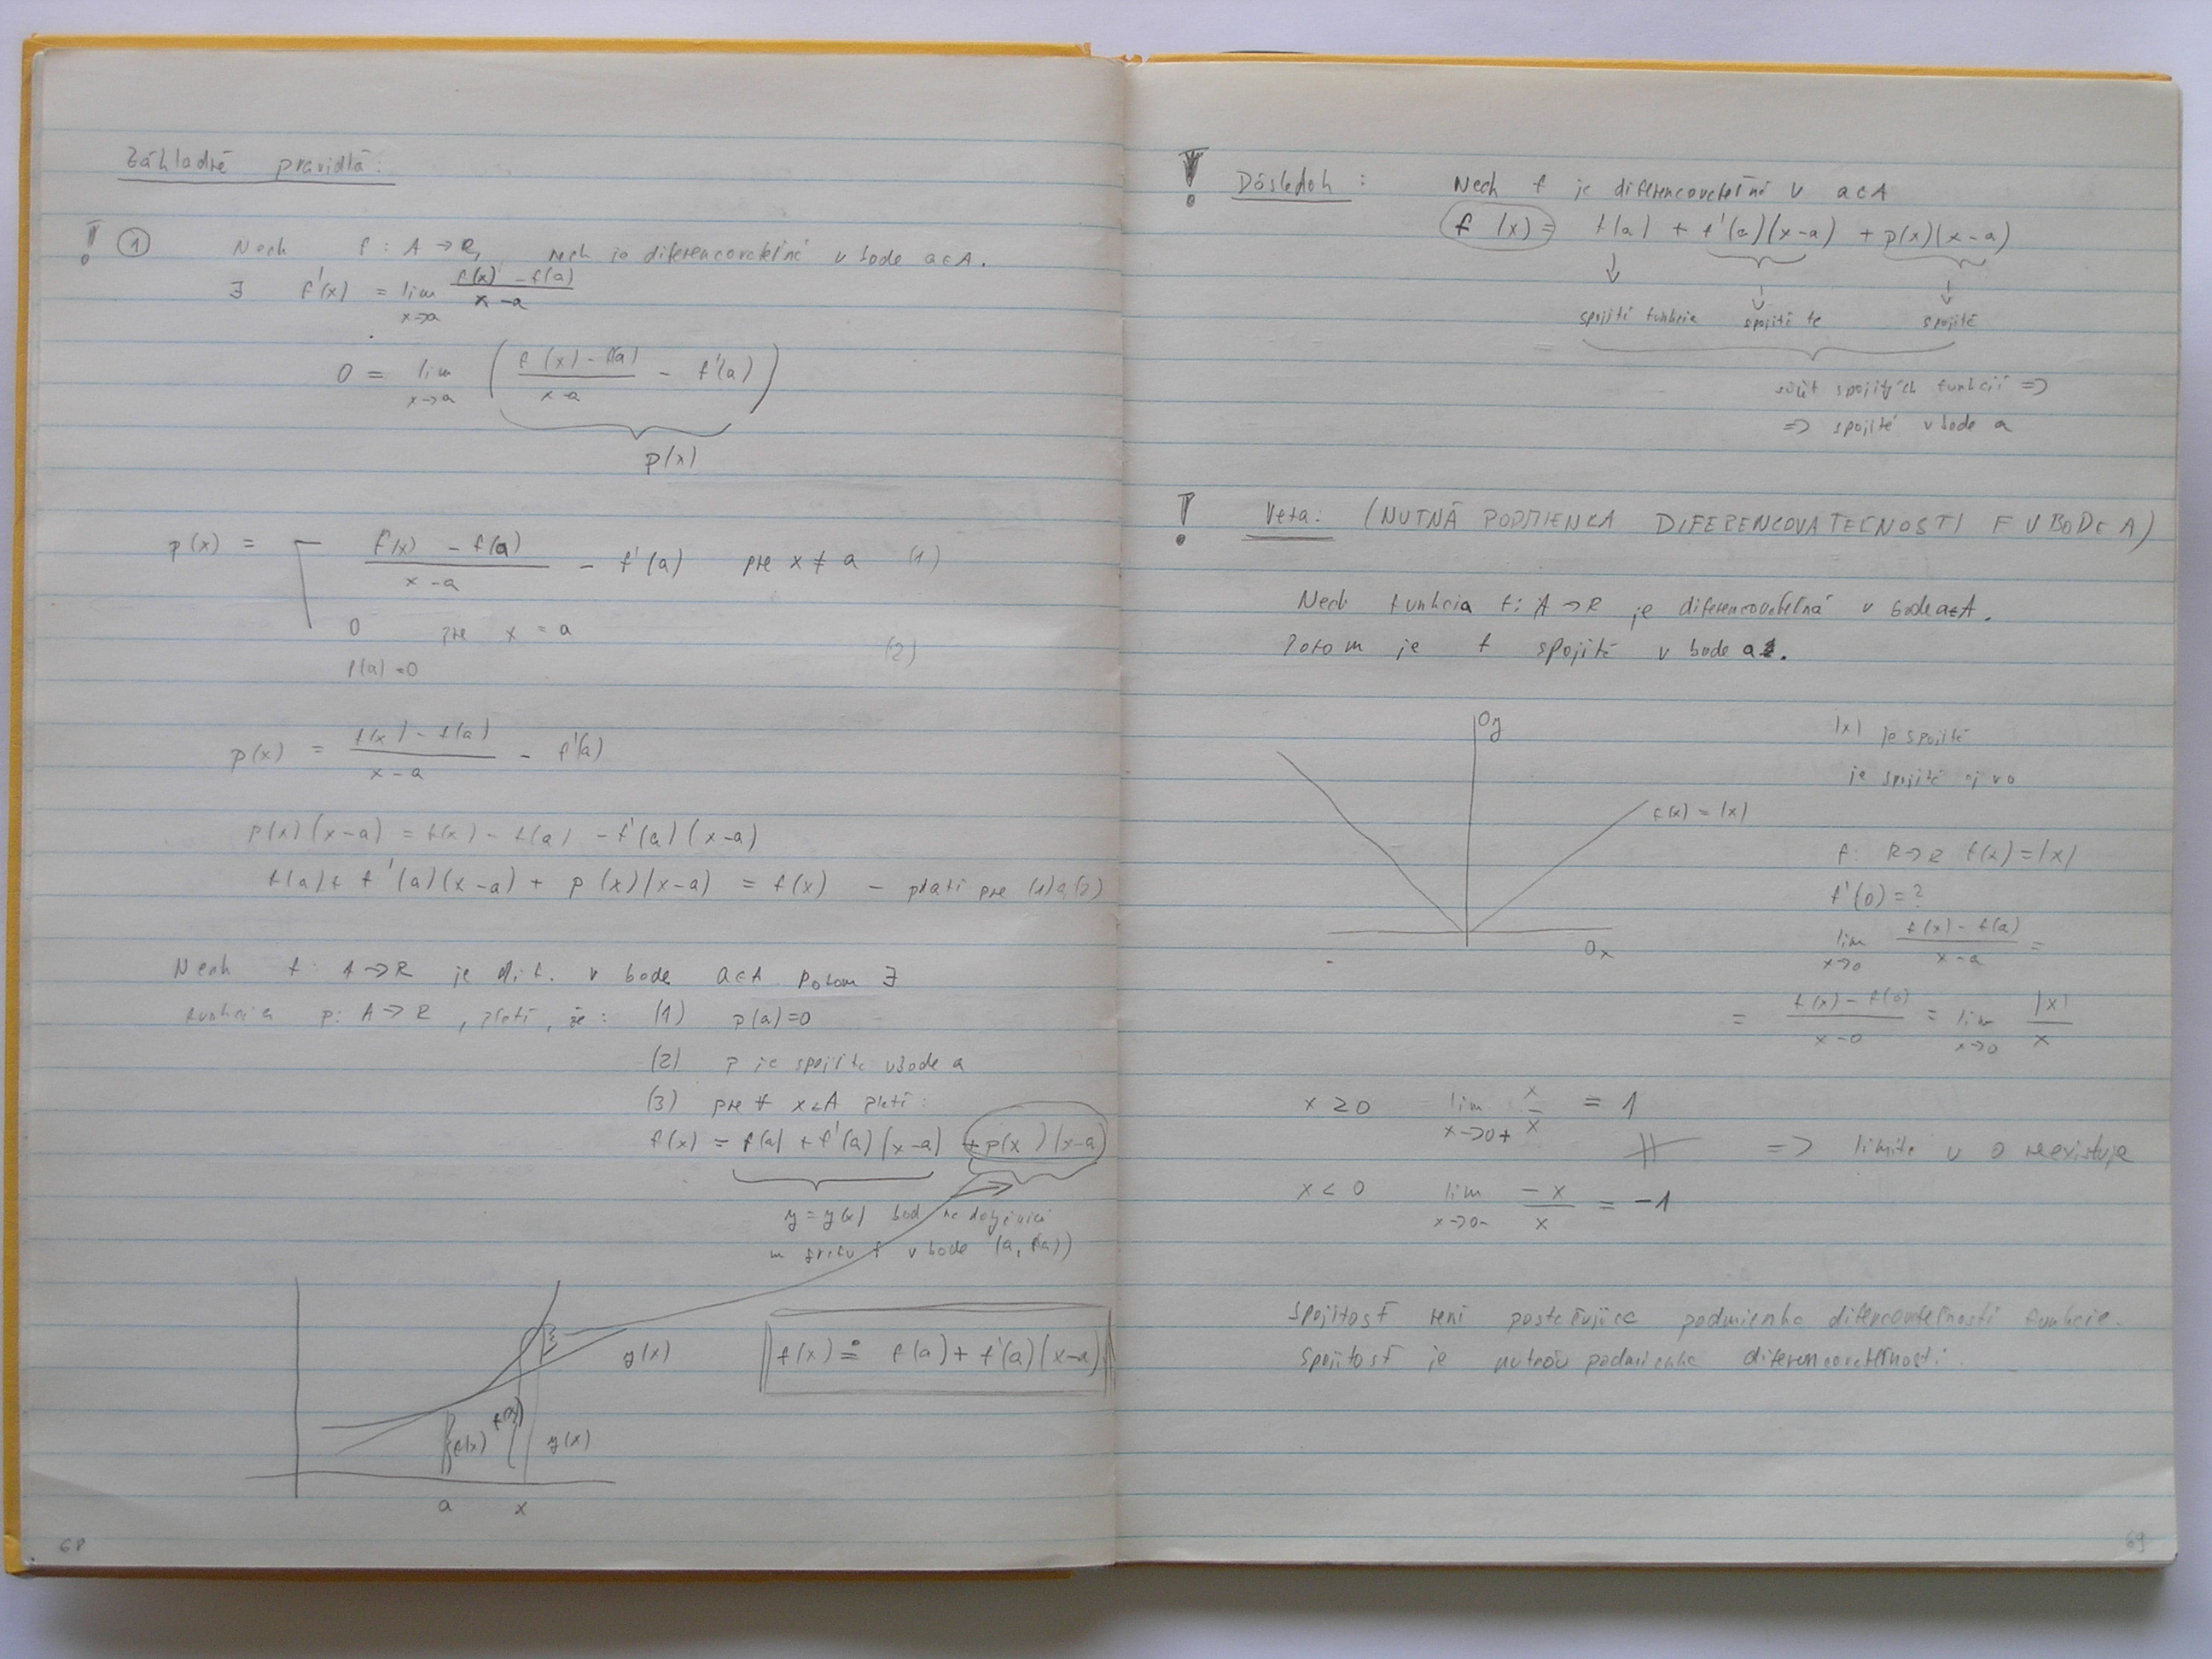 Základné pravidlá:
! ① Nech f: A → R, nech je diferencovateľná v bode a∈A.
∃ f'(x) = lim x→a (f(x) - f(a))/(x-a)
0 = lim x→a ( (f(x) - f(a))/(x-a) - f'(a) )
p(x)
p(x) = (f(x) - f(a))/(x-a) - f'(a) pre x ≠ a (1)
0 pre x = a (2)
p(a) = 0
p(x) = (f(x) - f(a))/(x-a) - f'(a)
p(x)(x-a) = f(x) - f(a) - f'(a)(x-a)
f(a) + f'(a)(x-a) + p(x)(x-a) = f(x) - platí pre (1) a (2)
Nech f: A → R je dif. v bode a∈A Potom ∃
funkcia p: A → R, platí, že: (1) p(a)=0
(2) p je spojitá v bode a
(3) pre ∀ x∈A platí:
f(x) = f(a) + f'(a)(x-a) + p(x)(x-a)
y = y(x) bod na dotyčnici
v bode (a, f(a))
y(x)
f(x) ≐ f(a) + f'(a)(x-a)
f(x)
f(x)
y(x)
a x
68
! Dôsledok: Nech f je diferencovateľná v a∈A
f(x) = f(a) + f'(a)(x-a) + p(x)(x-a)
spojitá funkcia spojitá spojitá
súčet spojitých funkcií =>
=> spojitá v bode a
! Veta: (NUTNÁ PODMIENKA DIFERENCOVATEĽNOSTI F V BODE A)
Nech funkcia f: A → R je diferencovateľná v bode a∈A.
Potom je f spojitá v bode a.
Oy
|x| je spojitá
je spojitá aj v 0
f(x) = |x|
f: R → R f(x) = |x|
f'(0) = ?
Ox
lim x→0 (f(x) - f(a))/(x-a) =
= (f(x) - f(0))/(x-0) = lim x→0 |x|/x
x ≥ 0 lim x→0+ x/x = 1
≠ => limita v 0 neexistuje
x < 0 lim x→0- -x/x = -1
Spojitosť není postačujúca podmienka diferencovateľnosti funkcie.
Spojitosť je nutnou podmienka diferencovateľnosti.
69